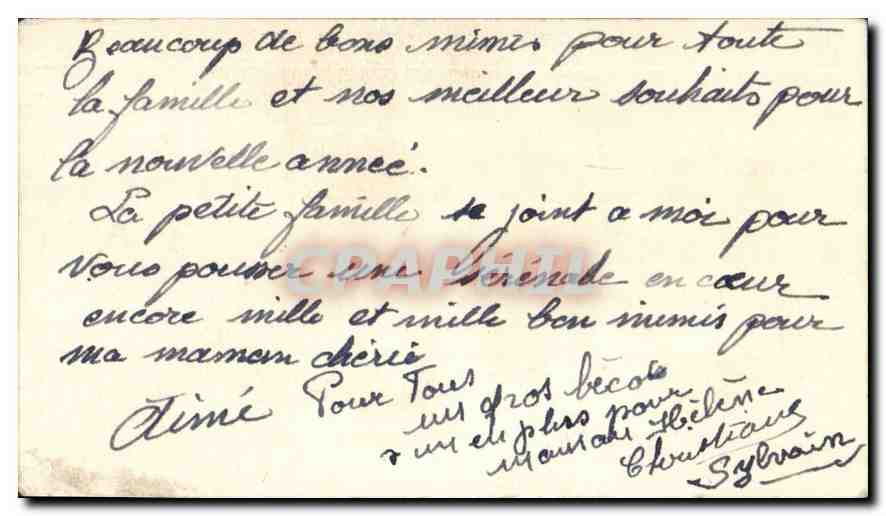 Beaucoup de bons mimis pour toute
la famille et nos meilleur souhaits pour
la nouvelle anneé.
La petite famille se joint a moi pour
vous pousser une sérénade en cœur
encore mille et mille bon mimis pour
ma maman chérie
Aimé
Pour Tous
un gros bécot
& un en plus pour
maman Hélène
Christiane
Sylvain
CPAPHIL